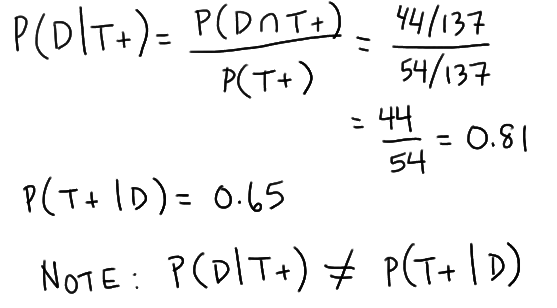 P(D|T+) = P(D∩T+) / P(T+) = 44/137 / 54/137
= 44/54 = 0.81
P(T+|D) = 0.65
NOTE: P(D|T+) ≠ P(T+|D)